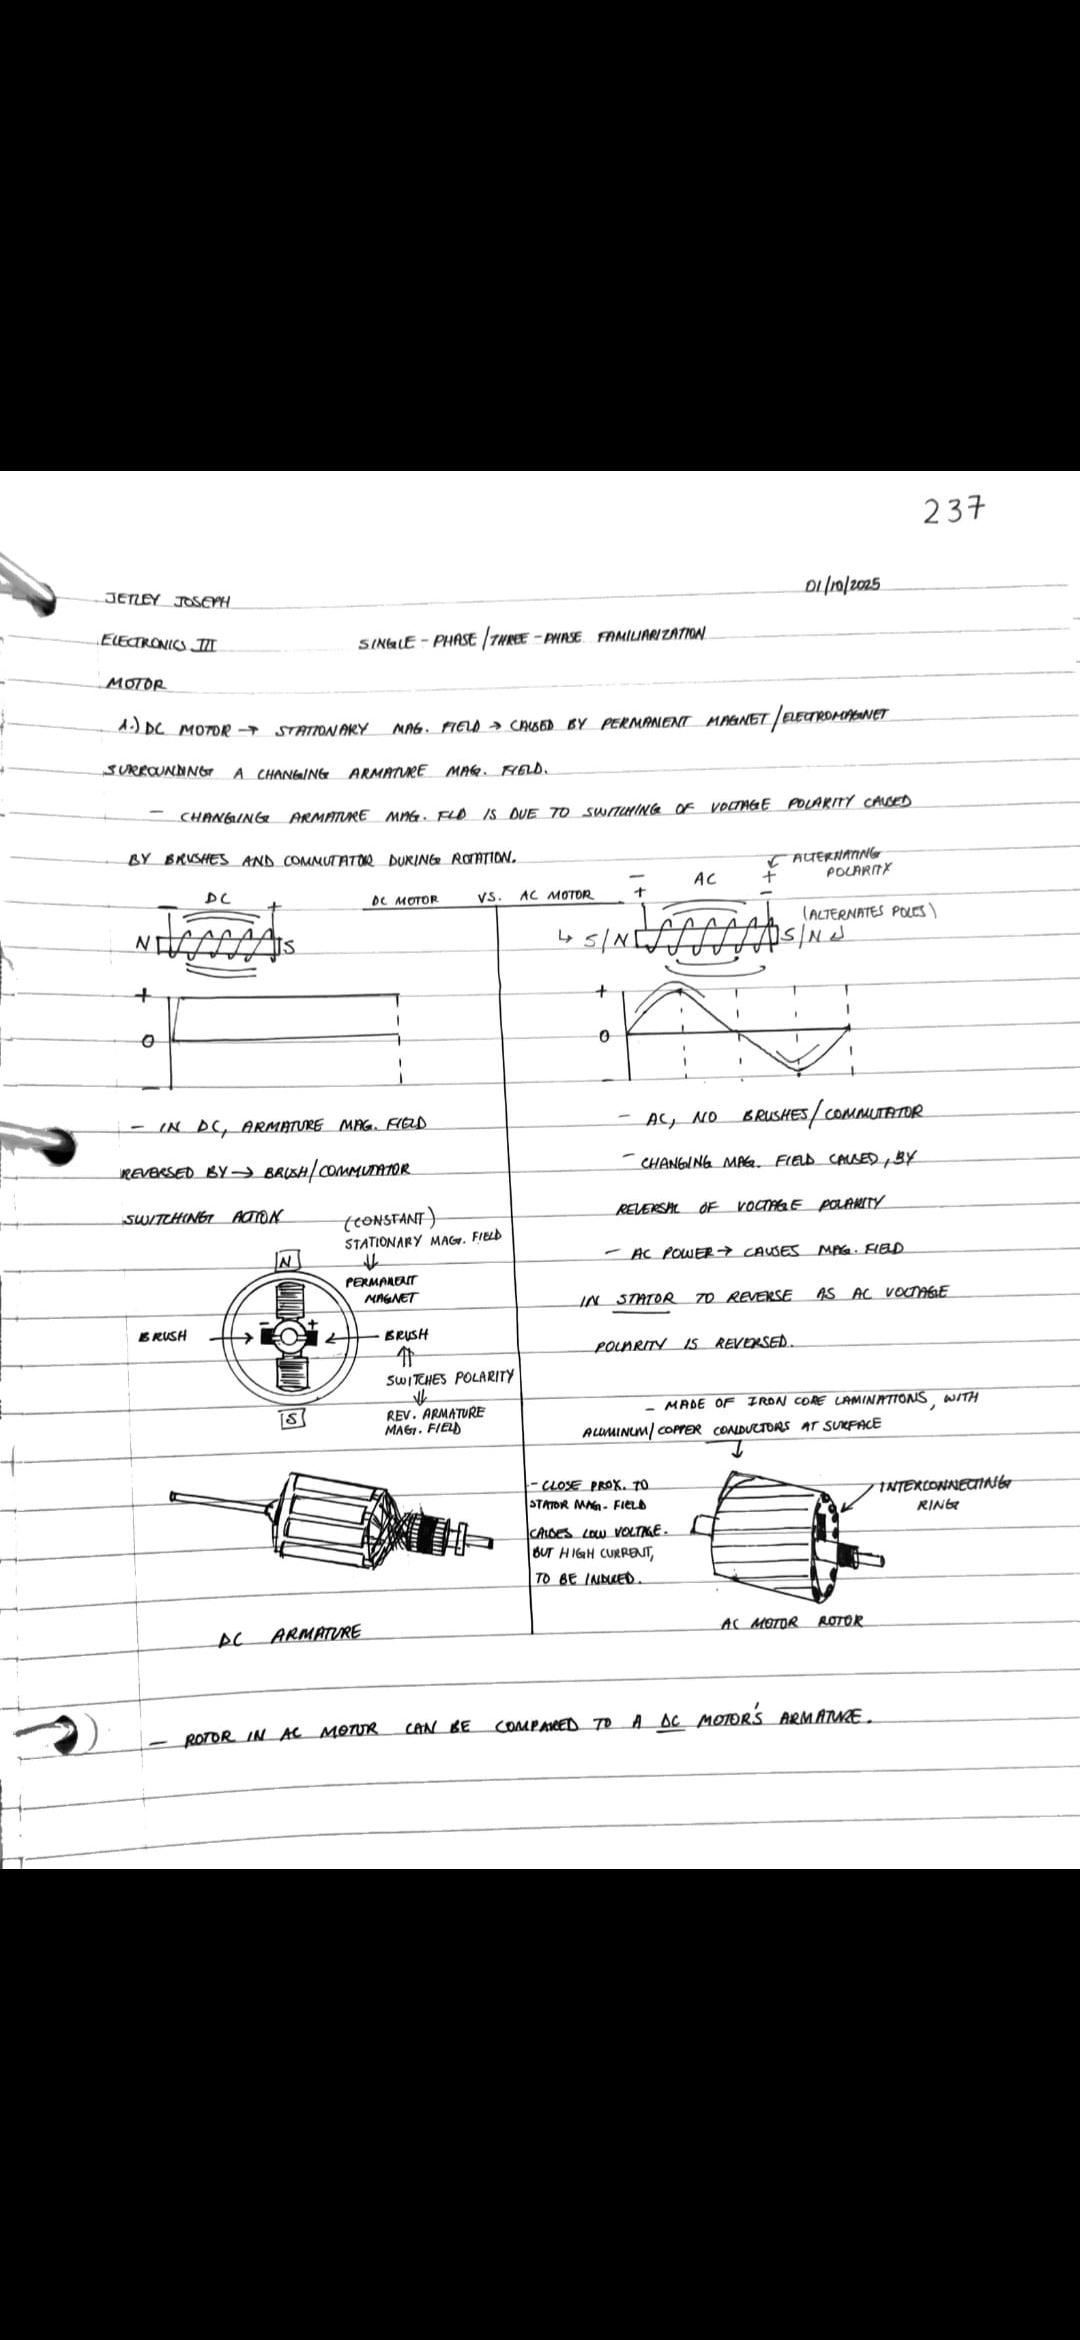 237
JETLEY JOSEPH
01/10/2025
ELECTRONICS III
SINGLE-PHASE/THREE-PHASE FAMILIARIZATION
MOTOR
1.) DC MOTOR → STATIONARY MAG. FIELD → CAUSED BY PERMANENT MAGNET/ELECTROMAGNET
SURROUNDING A CHANGING ARMATURE MAG. FIELD.
- CHANGING ARMATURE MAG. FLD IS DUE TO SWITCHING OF VOLTAGE POLARITY CAUSED
BY BRUSHES AND COMMUTATOR DURING ROTATION.
DC MOTOR VS. AC MOTOR
- DC +
N S
+
0
-
- IN DC, ARMATURE MAG. FIELD
REVERSED BY → BRUSH/COMMUTATOR
SWITCHING ACTION
(CONSTANT)
STATIONARY MAG. FIELD
⇓
PERMANENT
MAGNET
N
- +
BRUSH →
← BRUSH
⇑
SWITCHES POLARITY
⇓
REV. ARMATURE
MAG. FIELD
S
DC ARMATURE
ALTERNATING
POLARITY
- AC +
+ -
(ALTERNATES POLES)
↳ S/N S/N
+
0
-
- AC, NO BRUSHES/COMMUTATOR
- CHANGING MAG. FIELD CAUSED, BY
REVERSAL OF VOLTAGE POLARITY
- AC POWER → CAUSES MAG. FIELD
IN STATOR TO REVERSE AS AC VOLTAGE
POLARITY IS REVERSED.
- MADE OF IRON CORE LAMINATIONS, WITH
ALUMINUM/COPPER CONDUCTORS AT SURFACE
- CLOSE PROX. TO
STATOR MAG. FIELD
CAUSES LOW VOLTAGE.
BUT HIGH CURRENT,
TO BE INDUCED.
INTERCONNECTING
RING
AC MOTOR ROTOR
- ROTOR IN AC MOTOR CAN BE COMPARED TO A DC MOTOR'S ARMATURE.